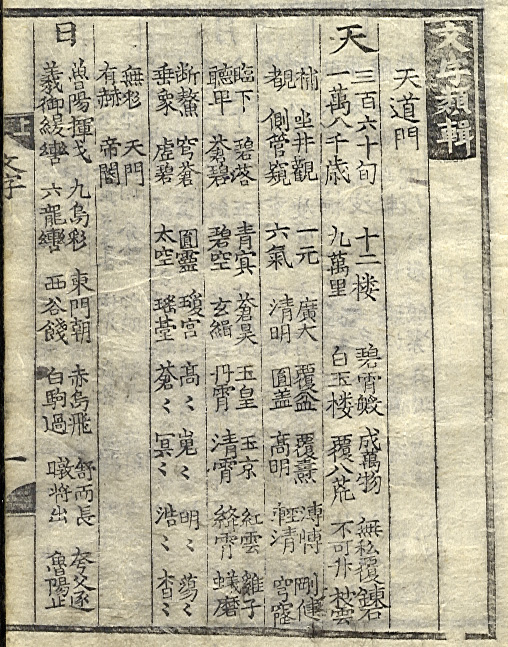 文字類輯
天道門
天
三百六十旬 十二楼 碧霄 成萬物 無私覆 錬石
一萬八千歳 九萬里 白玉楼 覆八荒 不可升 披雲
補 坐井觀 一元 廣大 覆盆 覆燾 溥博 剛健
覩 側管窺 六氣 清明 圓盖 高明 輕清 穹窿
臨下 碧落 青冥 蒼昊 玉皇 玉京 紅雲 雞子
聽卑 蒼碧 碧空 玄緇 丹霄 清霄 絳霄 蟻磨
断鰲 穹蒼 圓靈 瓊宮 高〻 嵬〻 明〻 蕩〻
垂象 虚碧 太空 瑤䑓 蒼〻 冥〻 浩〻 杳〻
無形 天門
有赫 帝閽
日
魯陽揮戈 九烏彩 東門朝 赤烏飛 舒而長 夸父逐
羲御緩轡 六龍轡 西谷餞 白駒過 暾将出 魯陽止
上
文字
一